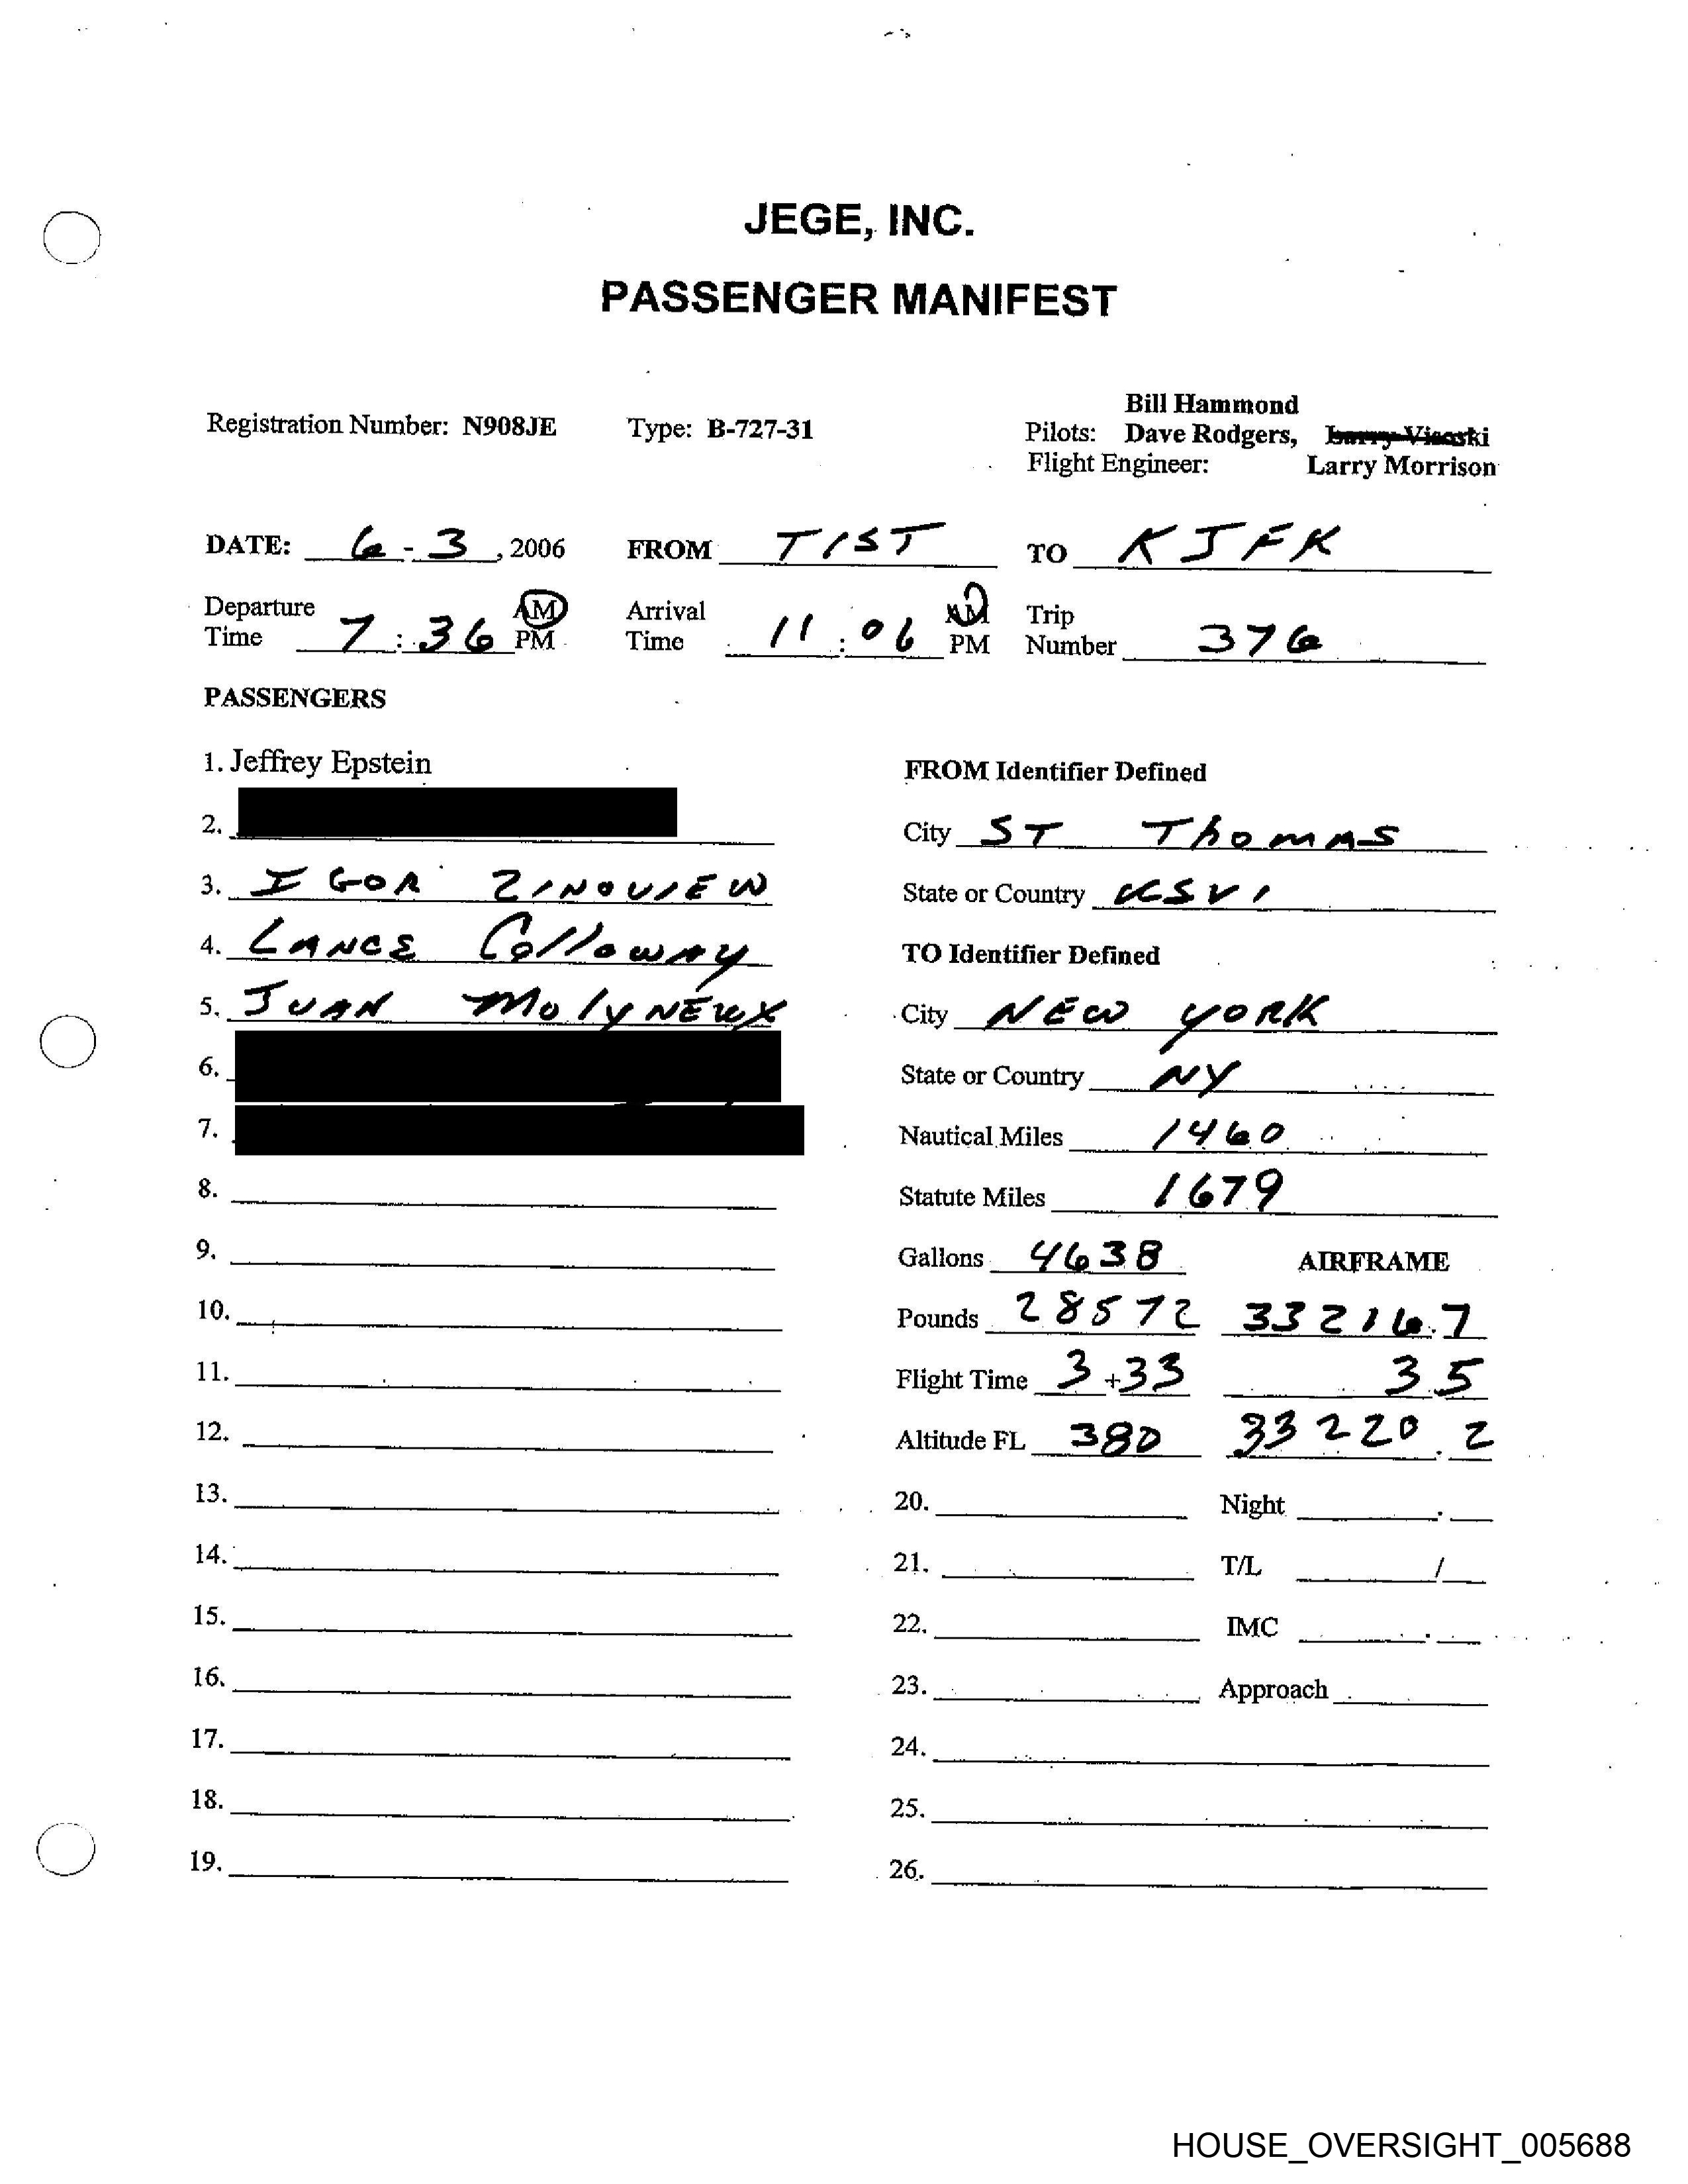 JEGE, INC.
PASSENGER MANIFEST
Bill Hammond
Registration Number: N908JE Type: B-727-31 Pilots: Dave Rodgers, Larry Visoski
Flight Engineer: Larry Morrison
DATE: 6-3, 2006 FROM TIST TO KJFK
Departure Time 7:36 AM PM Arrival Time 11:06 AM PM Trip Number 376
PASSENGERS
1. Jeffrey Epstein
2.
3. IGOR ZINOVIEW
4. LANCE Colloway
5. JUAN MolyNEUX
6.
7.
8.
9.
10.
11.
12.
13.
14.
15.
16.
17.
18.
19.
FROM Identifier Defined
City ST ThOMAS
State or Country USVI
TO Identifier Defined
City NEW YORK
State or Country NY
Nautical Miles 1460
Statute Miles 1679
Gallons 4638 AIRFRAME
Pounds 28572 33216.7
Flight Time 3+33 3.5
Altitude FL 380 33220.2
20. Night .
21. T/L /
22. IMC .
23. Approach
24.
25.
26.
HOUSE_OVERSIGHT_005688